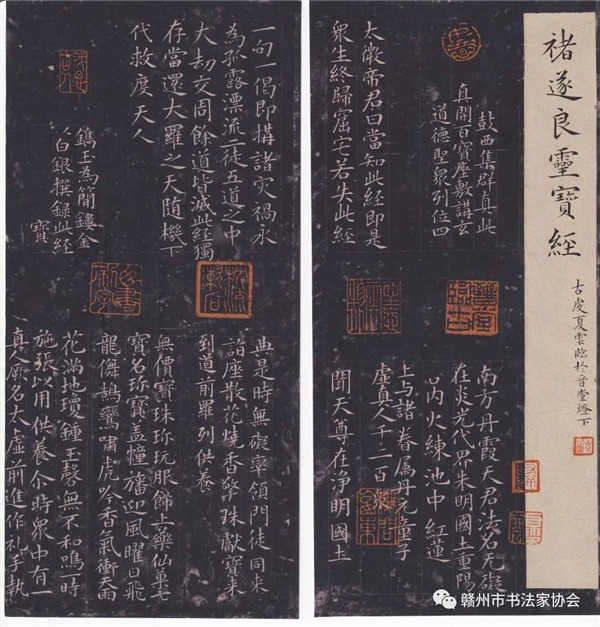 褚遂良靈寶經
古虔夏雲臨於晉堂燈下
鼓西集群真此
真開百寶座敷講玄
道德聖衆列位四
太微帝君曰當知此經即是
衆生終歸窟宅若失此經
南方丹霞天君法名无礙
在炎光代界朱明國土重陽
丙火練池中紅蓮
上与諸眷属丹元童子
虛真人千二百
聞天尊在淨明國土
一句一偈即搆諸灾禍永
為孤露漂流一徒五道之中
大劫交周餘道皆滅此經獨
存當還大羅之天随機下
代救度天人
鐫玉為簡鏤金
以白銀撰録此經
寶
典是時無礙宰領門徒同来
詣座散花燒香擎珠獻寳来
到道前羅列供養
無價寶珠珎玩服飾上藥仙草七
寶名珎寶盖幢旛迎風曜日飛
龍儛鵠鸞嘯虎吟香氣衝天雨
花滿地瓊鍾玉磬無不和鳴一時
施張以用供養尒時衆中有一
真人厥名大虛前進作礼手執
赣州市书法家协会